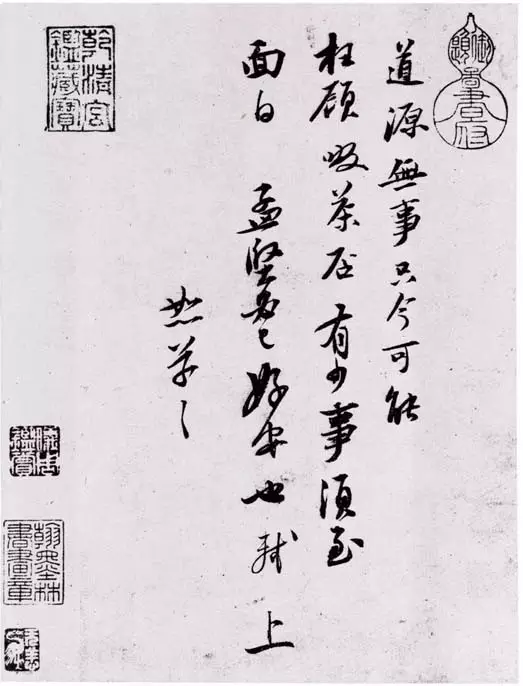 道源無事只今可能
枉顧啜茶否有少事須至
面白 孟堅必已好安也 軾 上
恕草々
乾清宮鑑藏寶
翰墨林書畫章